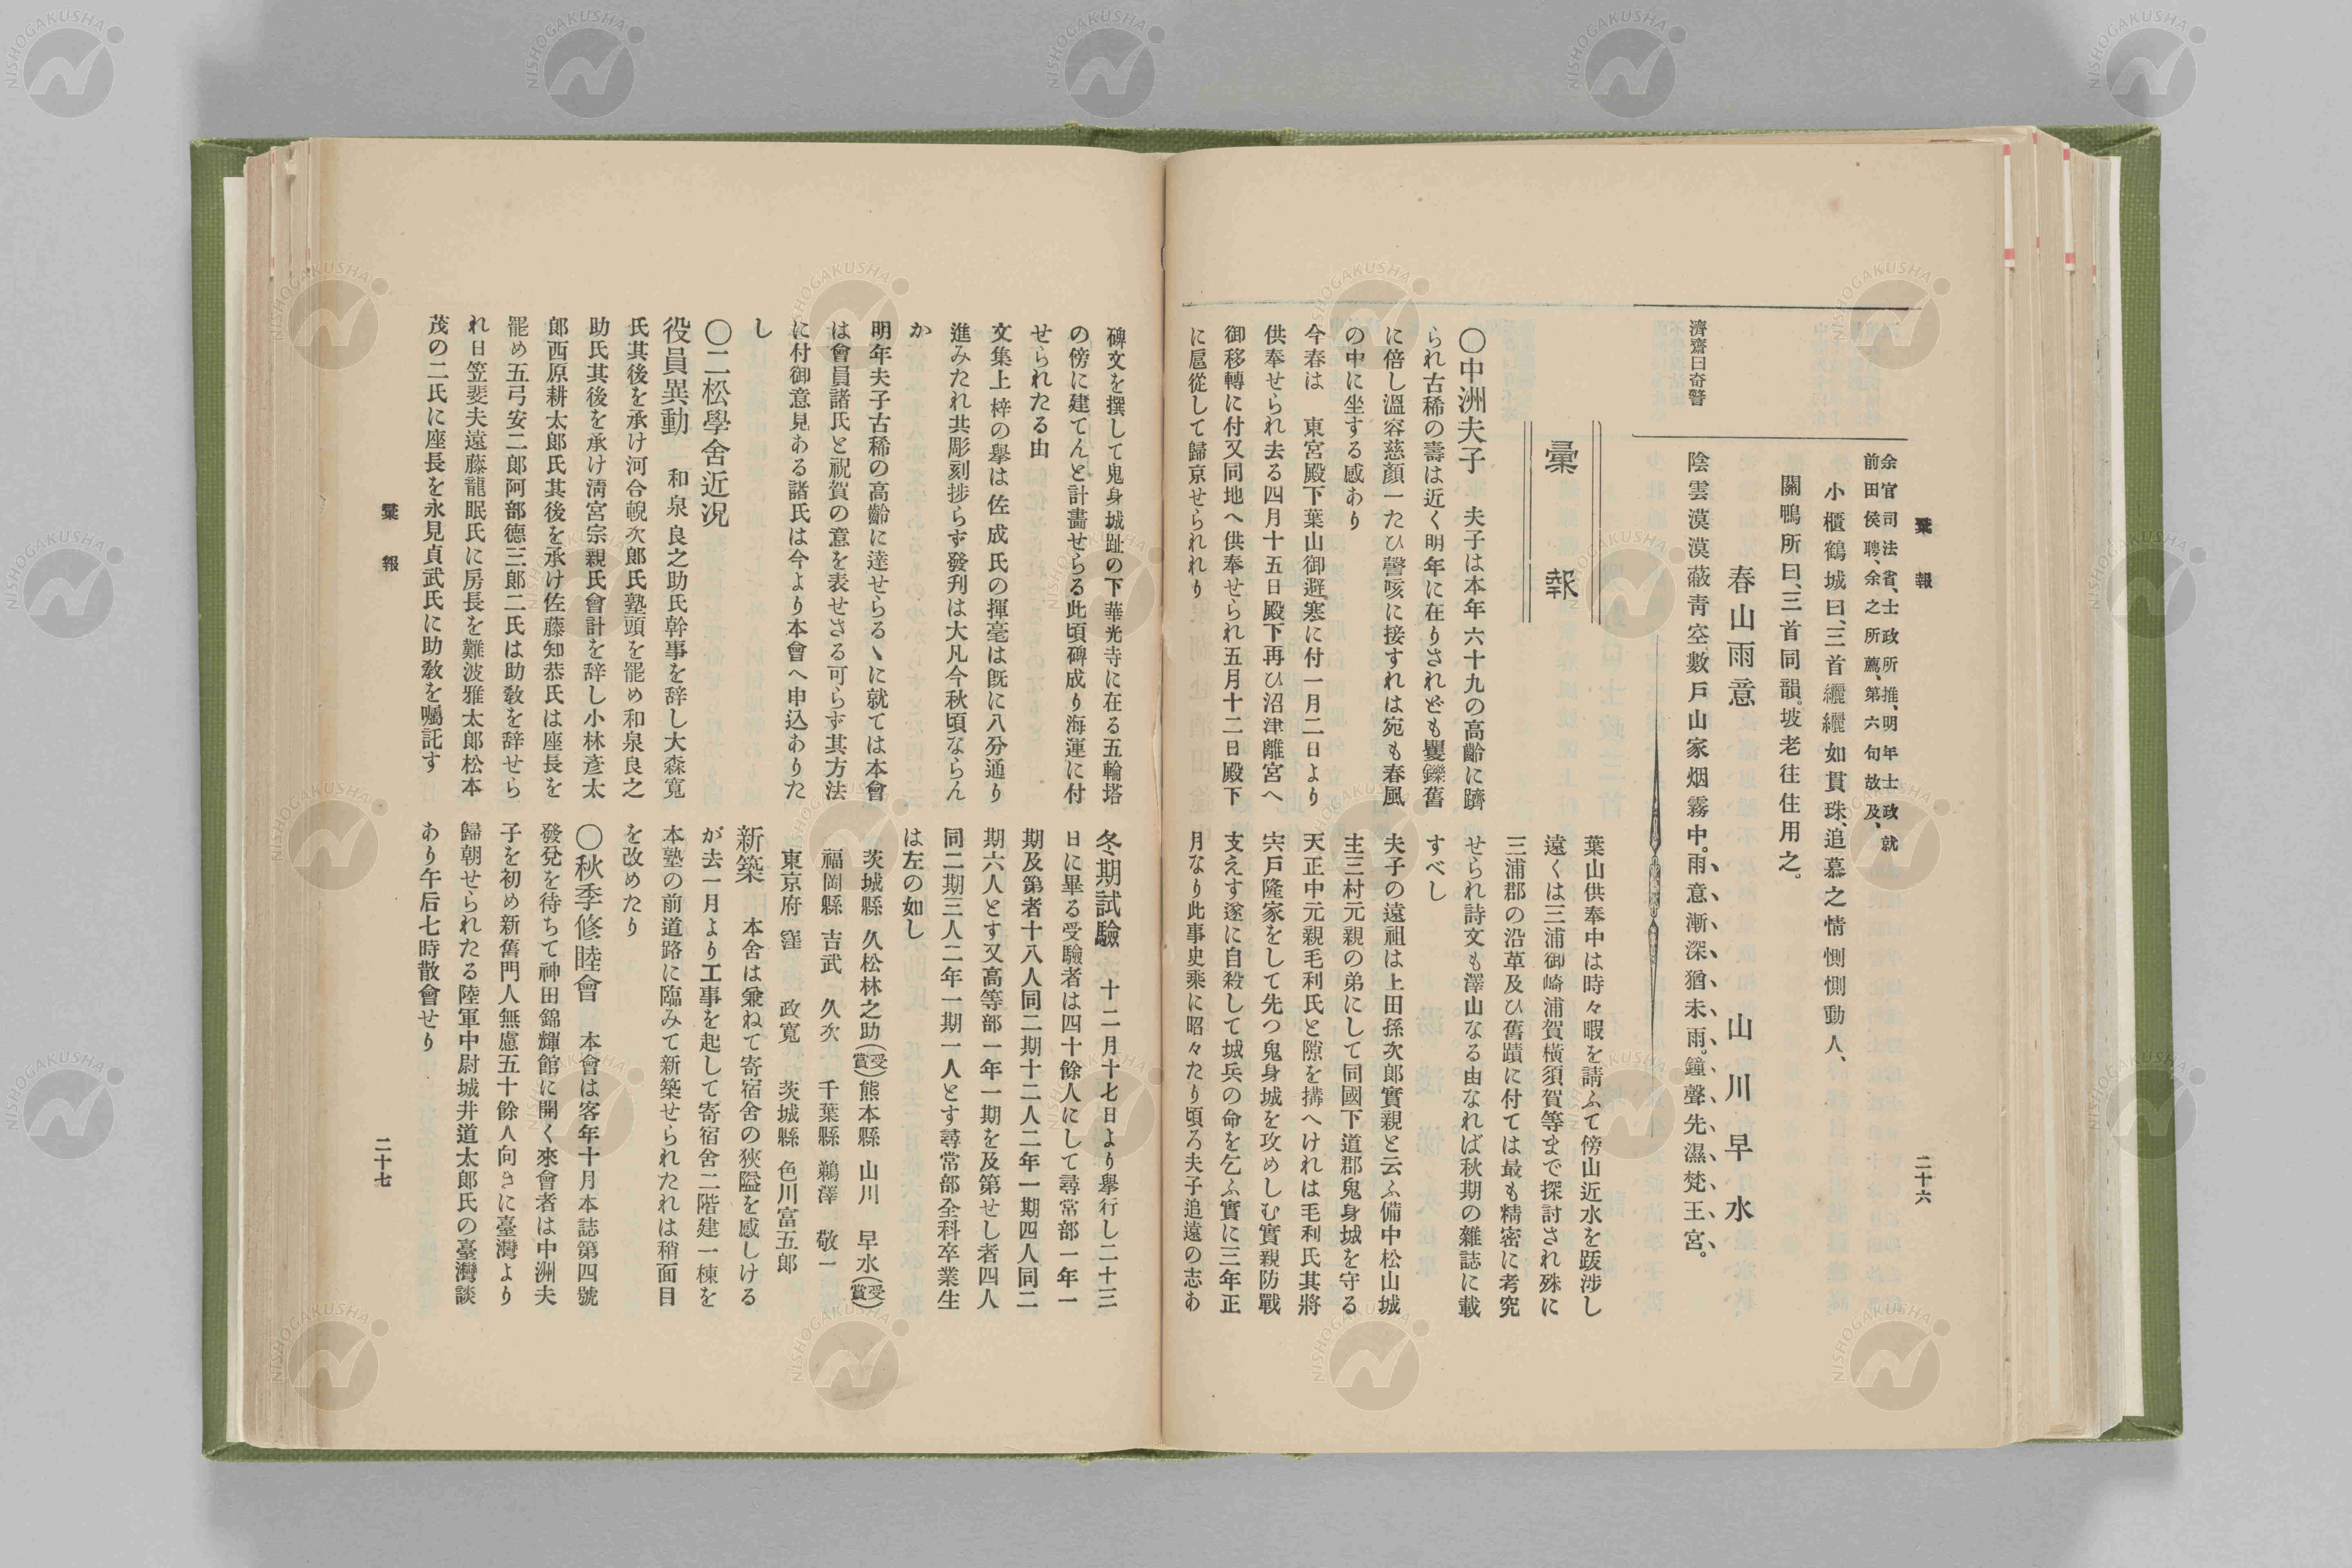 彙報
二十六
余官司法省、士政所推、明年士政就
前田侯聘、余之所薦、第六句故及、
小櫃鶴城曰、三首纚纚如貫珠、追慕之情惻惻動人、
關鴨所曰、三首同韻。坡老往往用之。
春山雨意
山川早水
濟齋曰奇警
陰雲漠漠蔽靑空數戶山家烟霧中。雨意漸深猶未雨。鐘聲先濕梵王宮。
彙報
〇中洲夫子 夫子は本年六十九の高齡に躋
られ古稀の壽は近く明年に在りされども矍鑠舊
に倍し溫容慈顏一たひ謦咳に接すれは宛も春風
の中に坐する感あり
今春は 東宮殿下葉山御避寒に付一月二日より
供奉せられ去る四月十五日殿下再ひ沼津離宮へ
御移轉に付又同地へ供奉せられ五月十二日殿下
に扈從して歸京せられれり
葉山供奉中は時々暇を請ふて傍山近水を跋涉し
遠くは三浦御崎浦賀橫須賀等まで探討され殊に
三浦郡の沿革及ひ舊蹟に付ては最も精密に考究
せられ詩文も澤山なる由なれば秋期の雜誌に載
すべし
夫子の遠祖は上田孫次郎實親と云ふ備中松山城
主三村元親の弟にして同國下道郡鬼身城を守る
天正中元親毛利氏と隙を搆へけれは毛利氏其將
宍戶隆家をして先つ鬼身城を攻めしむ實親防戰
支えす遂に自殺して城兵の命を乞ふ實に三年正
月なり此事史乘に昭々たり頃ろ夫子追遠の志あ
碑文を撰して鬼身城趾の下華光寺に在る五輪塔
の傍に建てんと計畫せらる此頃碑成り海運に付
せられたる由
文集上梓の擧は佐成氏の揮毫は既に八分通り
進みたれ共彫刻捗らず發刋は大凡今秋頃ならん
か
明年夫子古稀の高齡に達せらるゝに就ては本會
は會員諸氏と祝賀の意を表せさる可らず其方法
に付御意見ある諸氏は今より本會へ申込ありた
し
〇二松學舍近況
役員異動 和泉良之助氏幹事を辞し大森寬
氏其後を承け河合輗次郎氏塾頭を罷め和泉良之
助氏其後を承け淸宮宗親氏會計を辞し小林彥太
郎西原耕太郎氏其後を承け佐藤知恭氏は座長を
罷め五弓安二郎阿部德三郎二氏は助敎を辞せら
れ日笠斐夫遠藤龍眠氏に房長を難波雅太郎松本
茂の二氏に座長を永見貞武氏に助敎を囑託す
冬期試驗 十二月十七日より擧行し二十三
日に畢る受驗者は四十餘人にして尋常部一年一
期及第者十八人同二期十二人二年一期四人同二
期六人とす又高等部一年一期を及第せし者四人
同二期三人二年一期一人とす尋常部全科卒業生
は左の如し
茨城縣 久松林之助(受賞)熊本縣 山川 早水(受賞)
福岡縣 吉武 久次 千葉縣 鵜澤 敬一
東京府 窪 政寬 茨城縣 色川富五郎
新築 本舍は兼ねて寄宿舍の狹隘を感しける
が去一月より工事を起して寄宿舍二階建一棟を
本塾の前道路に臨みて新築せられたれは稍面目
を改めたり
〇秋季修睦會 本會は客年十月本誌第四號
發兌を待ちて神田錦輝館に開く來會者は中洲夫
子を初め新舊門人無慮五十餘人向きに臺灣より
歸朝せられたる陸軍中尉城井道太郎氏の臺灣談
あり午后七時散會せり
彙報
二十七